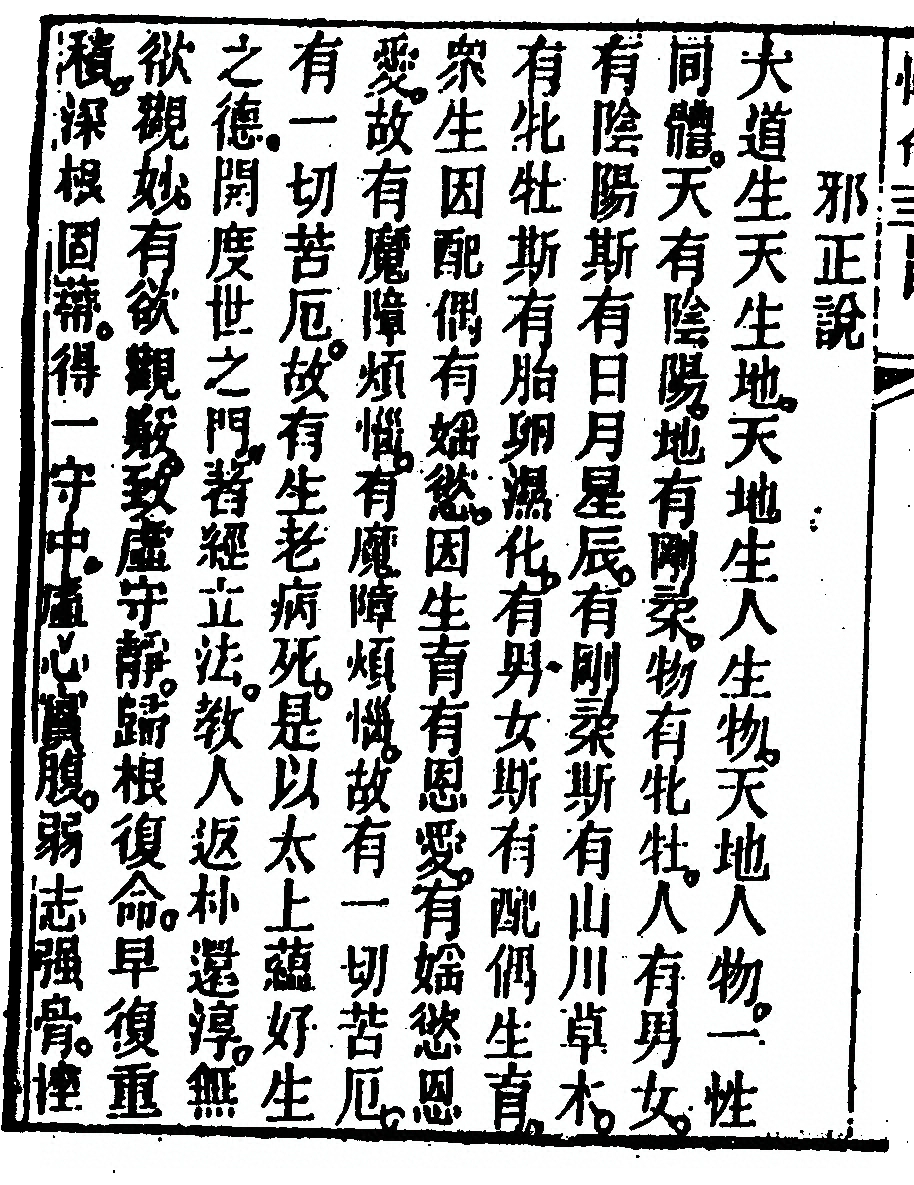 邪正說
大道生天生地。天地生人生物。天地人物。一性
同體。天有陰陽。地有剛柔。物有牝牡。人有男女。
有陰陽斯有日月星辰。有剛柔斯有山川草木。
有牝牡斯有胎卵濕化。有男女斯有配偶生育。
衆生因配偶有婬慾。因生育有恩愛。有婬慾恩
愛。故有魔障煩惱。有魔障煩惱。故有一切苦厄。
有一切苦厄。故有生老病死。是以太上蘊好生
之德。開度世之門。著經立法。教人返朴還淳。無
欲觀妙。有欲觀竅。致虛守靜。歸根復命。早復重
積。深根固蔕。得一守中。虛心實腹。弱志强骨。